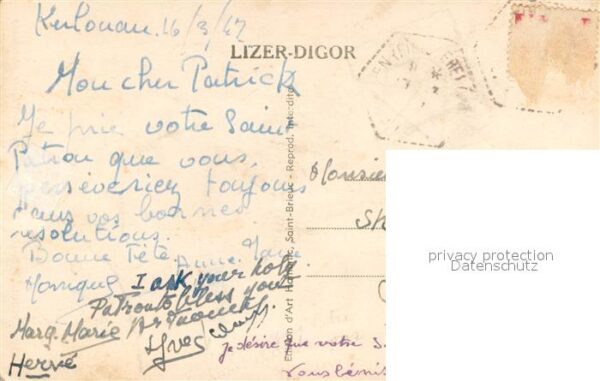 Kerlouan. 16/3/47
LIZER-DIGOR
Mon cher Patrick
Je prie votre Saint
Patron que vous
perséveriez toujours
dans vos bonnes
résolutions.
Bonne Fête Anne Marie
Monique
I ask your holy
Patron to bless you
Marg. Marie
Yves
Hervé
Edition d'Art Saint-Brieuc - Reprod. interdite
Monsie
Sh
privacy protection
Datenschutz
je désire que votre S
vous béni